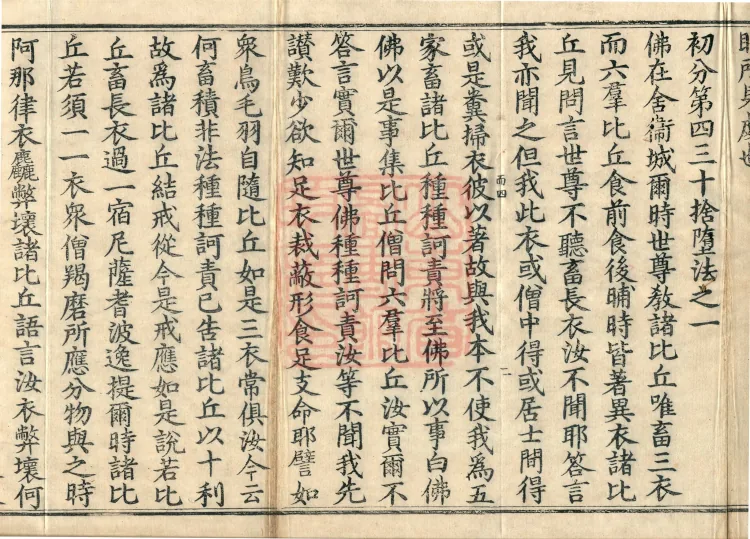 初分第四三十捨墮法之一
佛在舍衞城爾時世尊教諸比丘唯畜三衣
而六羣比丘食前食後晡時皆著異衣諸比
丘見問言世尊不聽畜長衣汝不聞耶答言
我亦聞之但我此衣或僧中得或居士間得
而四
二
或是糞掃衣彼以著故與我本不使我爲五
家畜諸比丘種種訶責將至佛所以事白佛
佛以是事集比丘僧問六羣比丘汝實爾不
答言實爾世尊佛種種訶責汝等不聞我先
讃歎少欲知足衣裁蔽形食足支命耶譬如
衆鳥毛羽自隨比丘如是三衣常俱汝今云
何畜積非法種種訶責已告諸比丘以十利
故爲諸比丘結戒從今是戒應如是說若比
丘畜長衣過一宿尼薩耆波逸提爾時諸比
丘若須一一衣衆僧羯磨所應分物與之時
阿那律衣麤弊壞諸比丘語言汝衣弊壞何